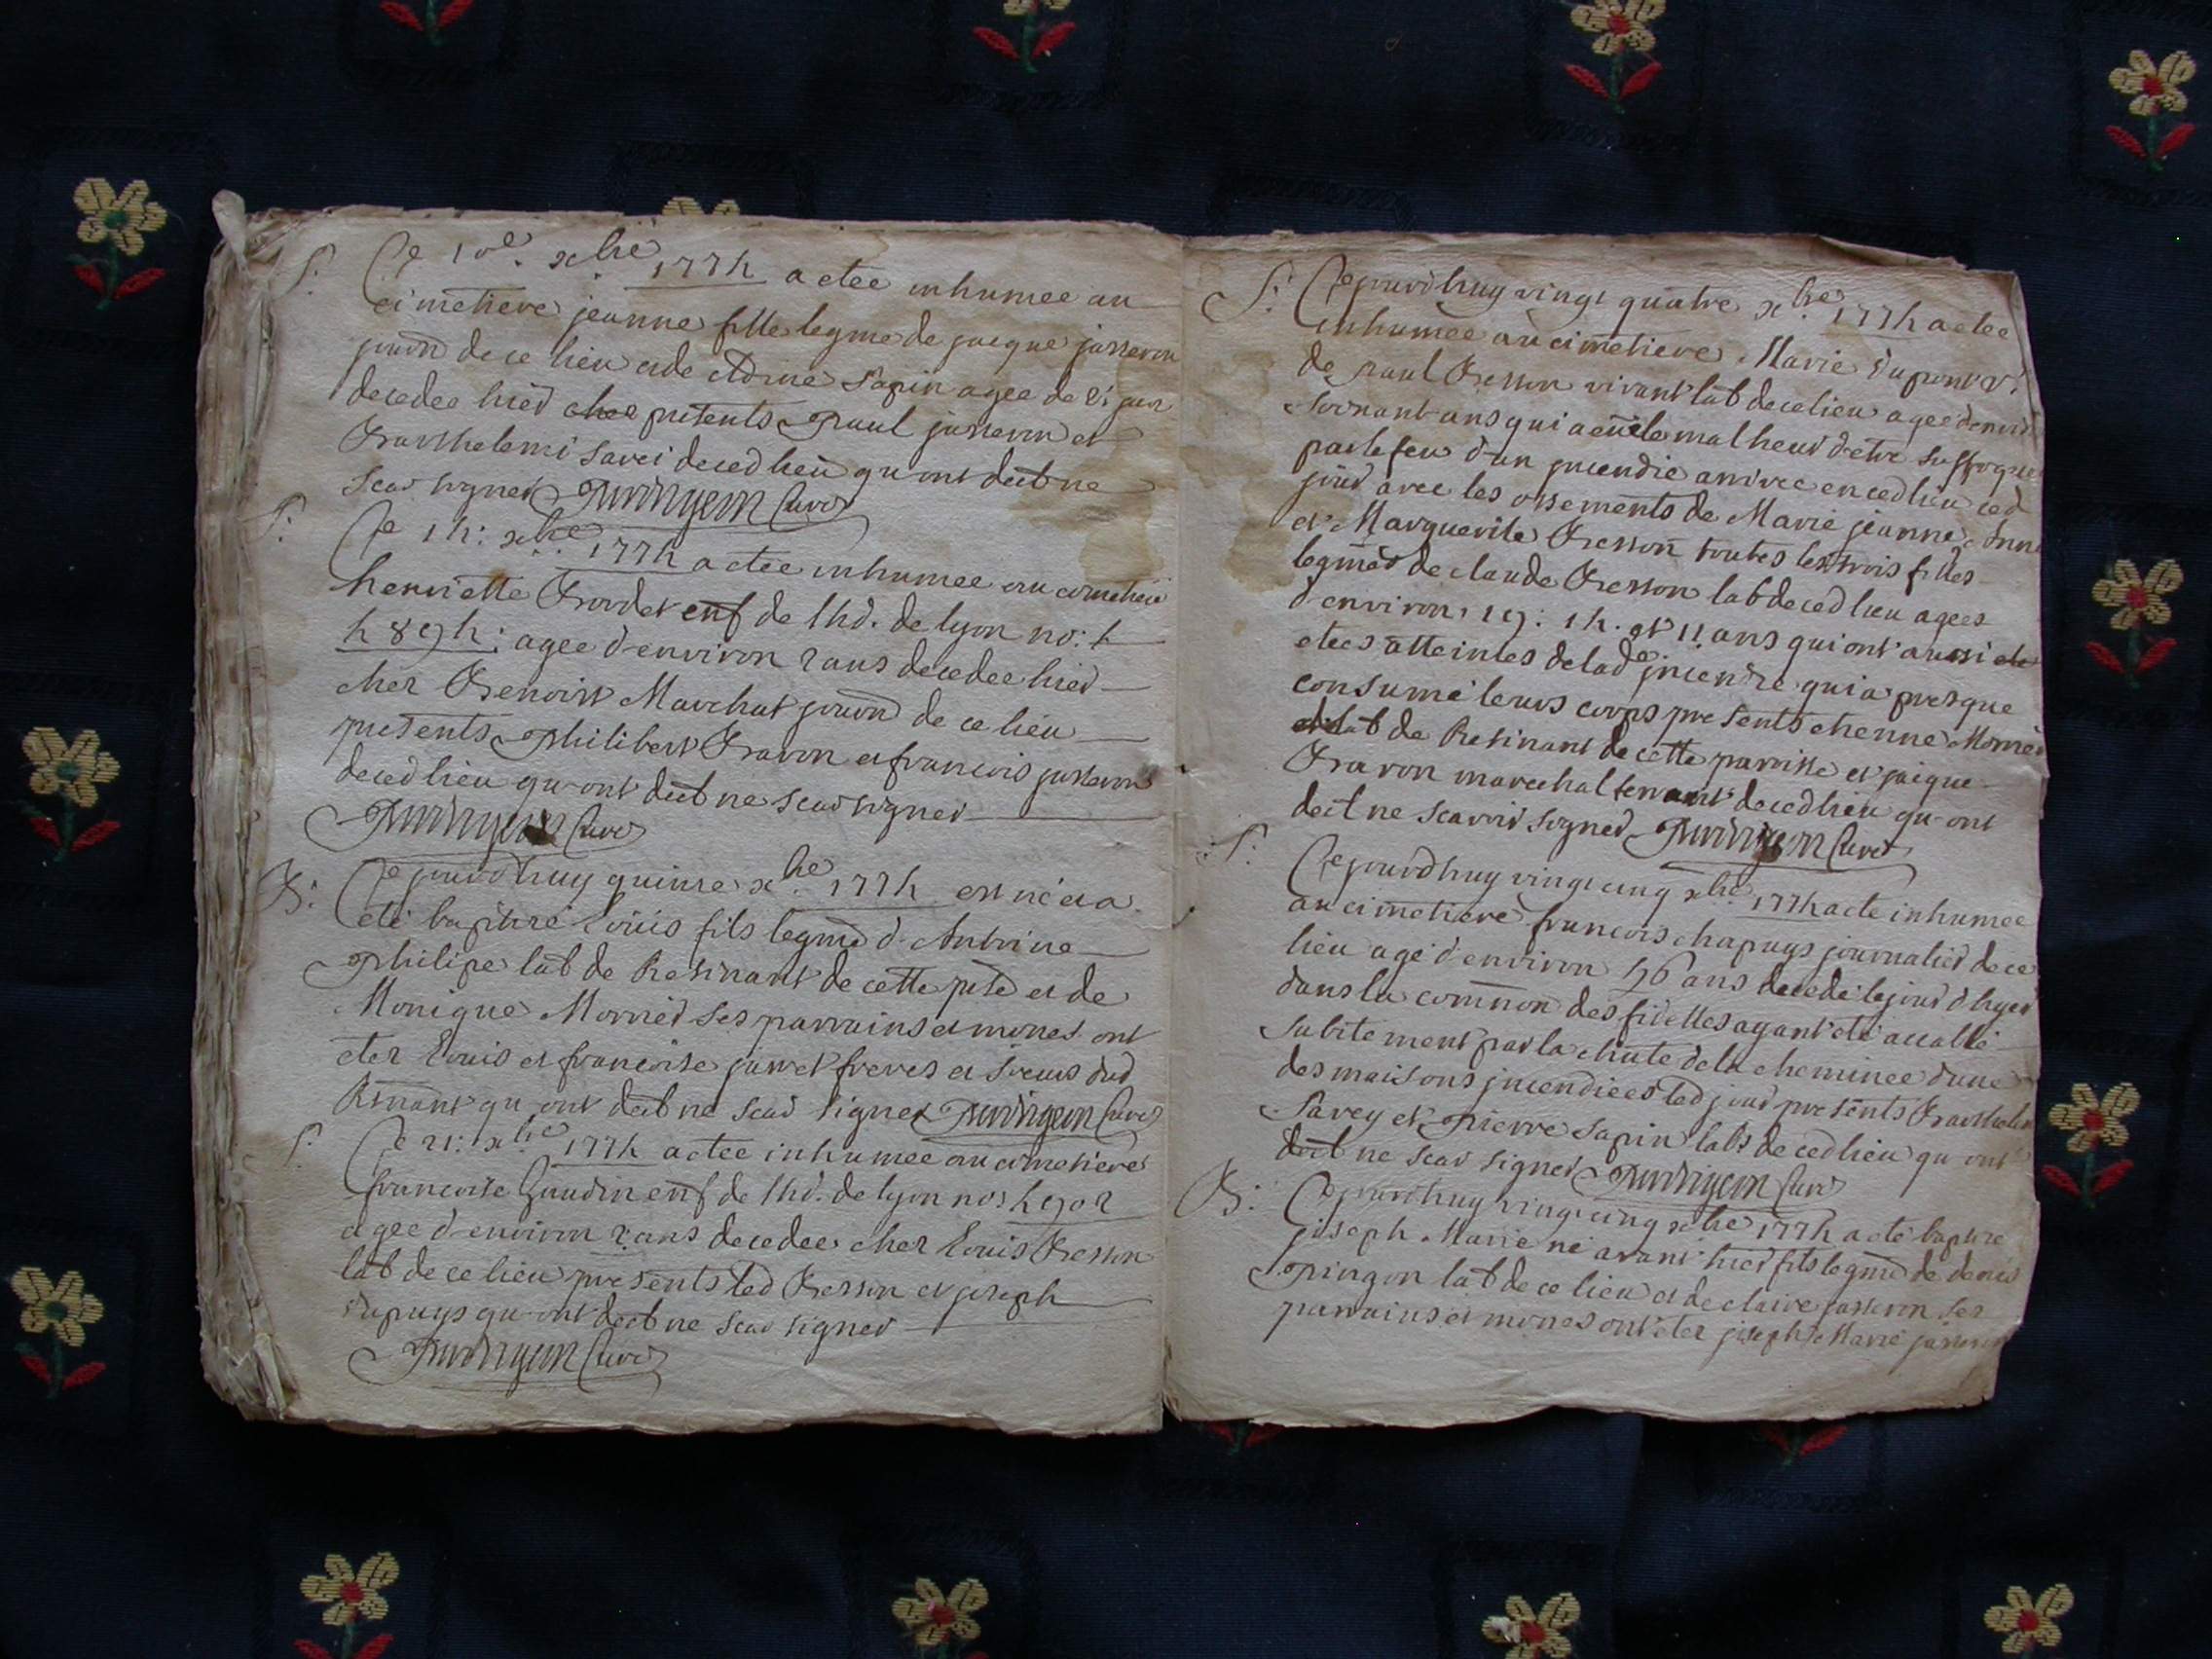 S: Ce 10e. xbre 1774 a etee inhumee au
cimetiere jeanne fille legme de jacque jasseron
journ de ce lieu et de sapin agee de 21 jour
decedee hier presents paul jasseron et
Barthelemi Savei decedlieu qu ont declt ne
scav signer Curé
S: Ce 14: xbre 1774 a etee inhumee au cimetiere
henriette Bordet enf de lhd. de lyon no: L
4894: agee d'environ 2 ans decedee hier
chez Benoist Marchat journ de ce lieu
presents philibert Bravon et francois jasseron
decedlieu qu-ont declt ne scav signer
Curé
B: Cejourdhuy quinze xbre 1774 est né et a
eté baptizé Louis fils legme d-Antoine
philipe lab de Resinant de cette psse et de
Monique Mornier ses parrains et mones ont
etez Louis et francoise freres et soeurs dud
Resinant qu ont declt ne scav signer Curé
S: Ce 21: xbre 1774 a etee inhumee au cimetiere
francoise Gaudin enf de lhd. de lyon no: L 4902
agee d-environ 2 ans decedee chez Louis Besson
lab de ce lieu presents led Besson et joseph
dupuys qu-ont declt ne scav signer
Curé
S: Cejourdhuy vingt quatre xbre 1774 a etee
inhumee au cimetiere Marie dupont v:
de paul Besson vivant lab de ce lieu agee denvir
soixant-ans qui a eu le malheur d'etre suffoquee
par le feu d'un jncendie arrivee en ced lieu ced
jour avec les ossements de Marie jeanne, Anne
et Marguerite Besson toutes les trois filles
legmes de claude Besson lab de ced lieu agees
d'environ 19: 14. et 11 ans qui ont aussi
etees atteintes delade jncendie qui a presque
consumé leurs corps presents etienne Mornier
lab de Resinant de cette parroisse et jacque
Bravon marechal ferrant decedlieu qu-ont
declt ne scavoir signer Curé
S: Cejourdhuy vingt cinq xbre 1774 a ete inhumee
au cimetiere francois chapuys journalier de ce
lieu agé d'environ 46 ans decedé le jour d'hyer
dans la common des fidelles ayant eté accablé
subitement par la chute de la cheminee d'une
des maisons jncendiees led jour presents Barthelemi
Savey et pierre sapin labs de ced lieu qu ont
declt ne scav signer Curé
B: Cejourdhuy vingt cinq xbre 1774 a eté baptize
joseph Marie né avant hier fils legme de denis
pingon lab de ce lieu et de claire jasseron ses
parrains et mones ont etez joseph Marie jasseron